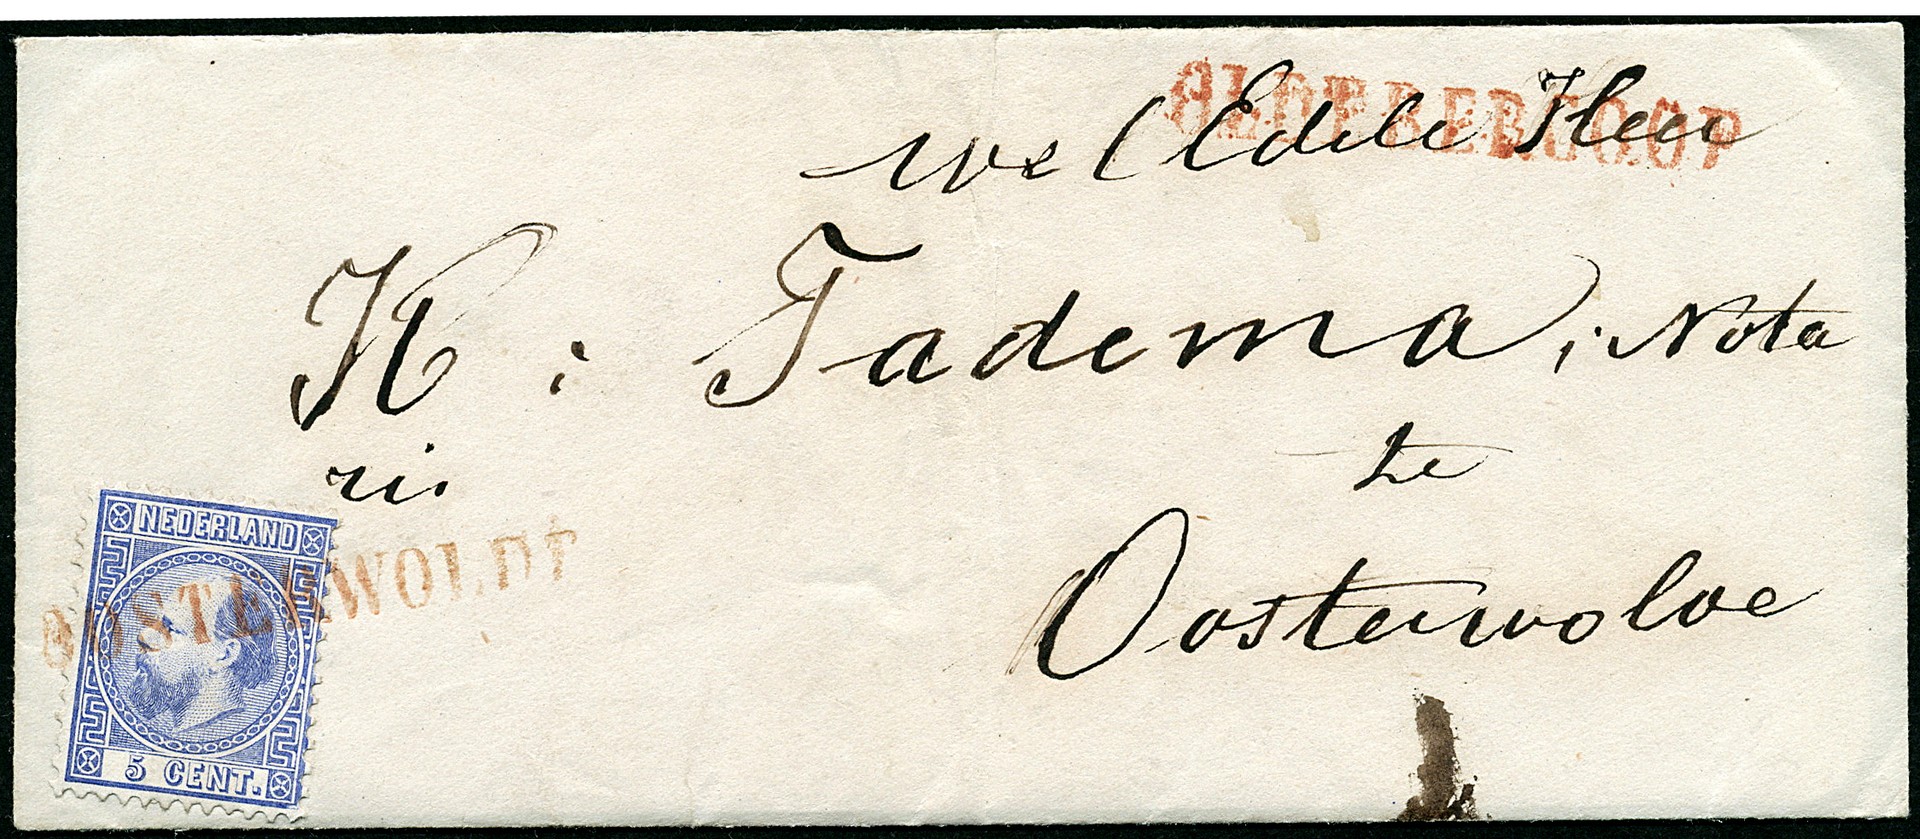 OLDEBERCOOP
wel Edele Heer
K: Tadema, Nota
ris
te
Oosterwolve
NEDERLAND
OOSTERWOLDE
5 CENT.